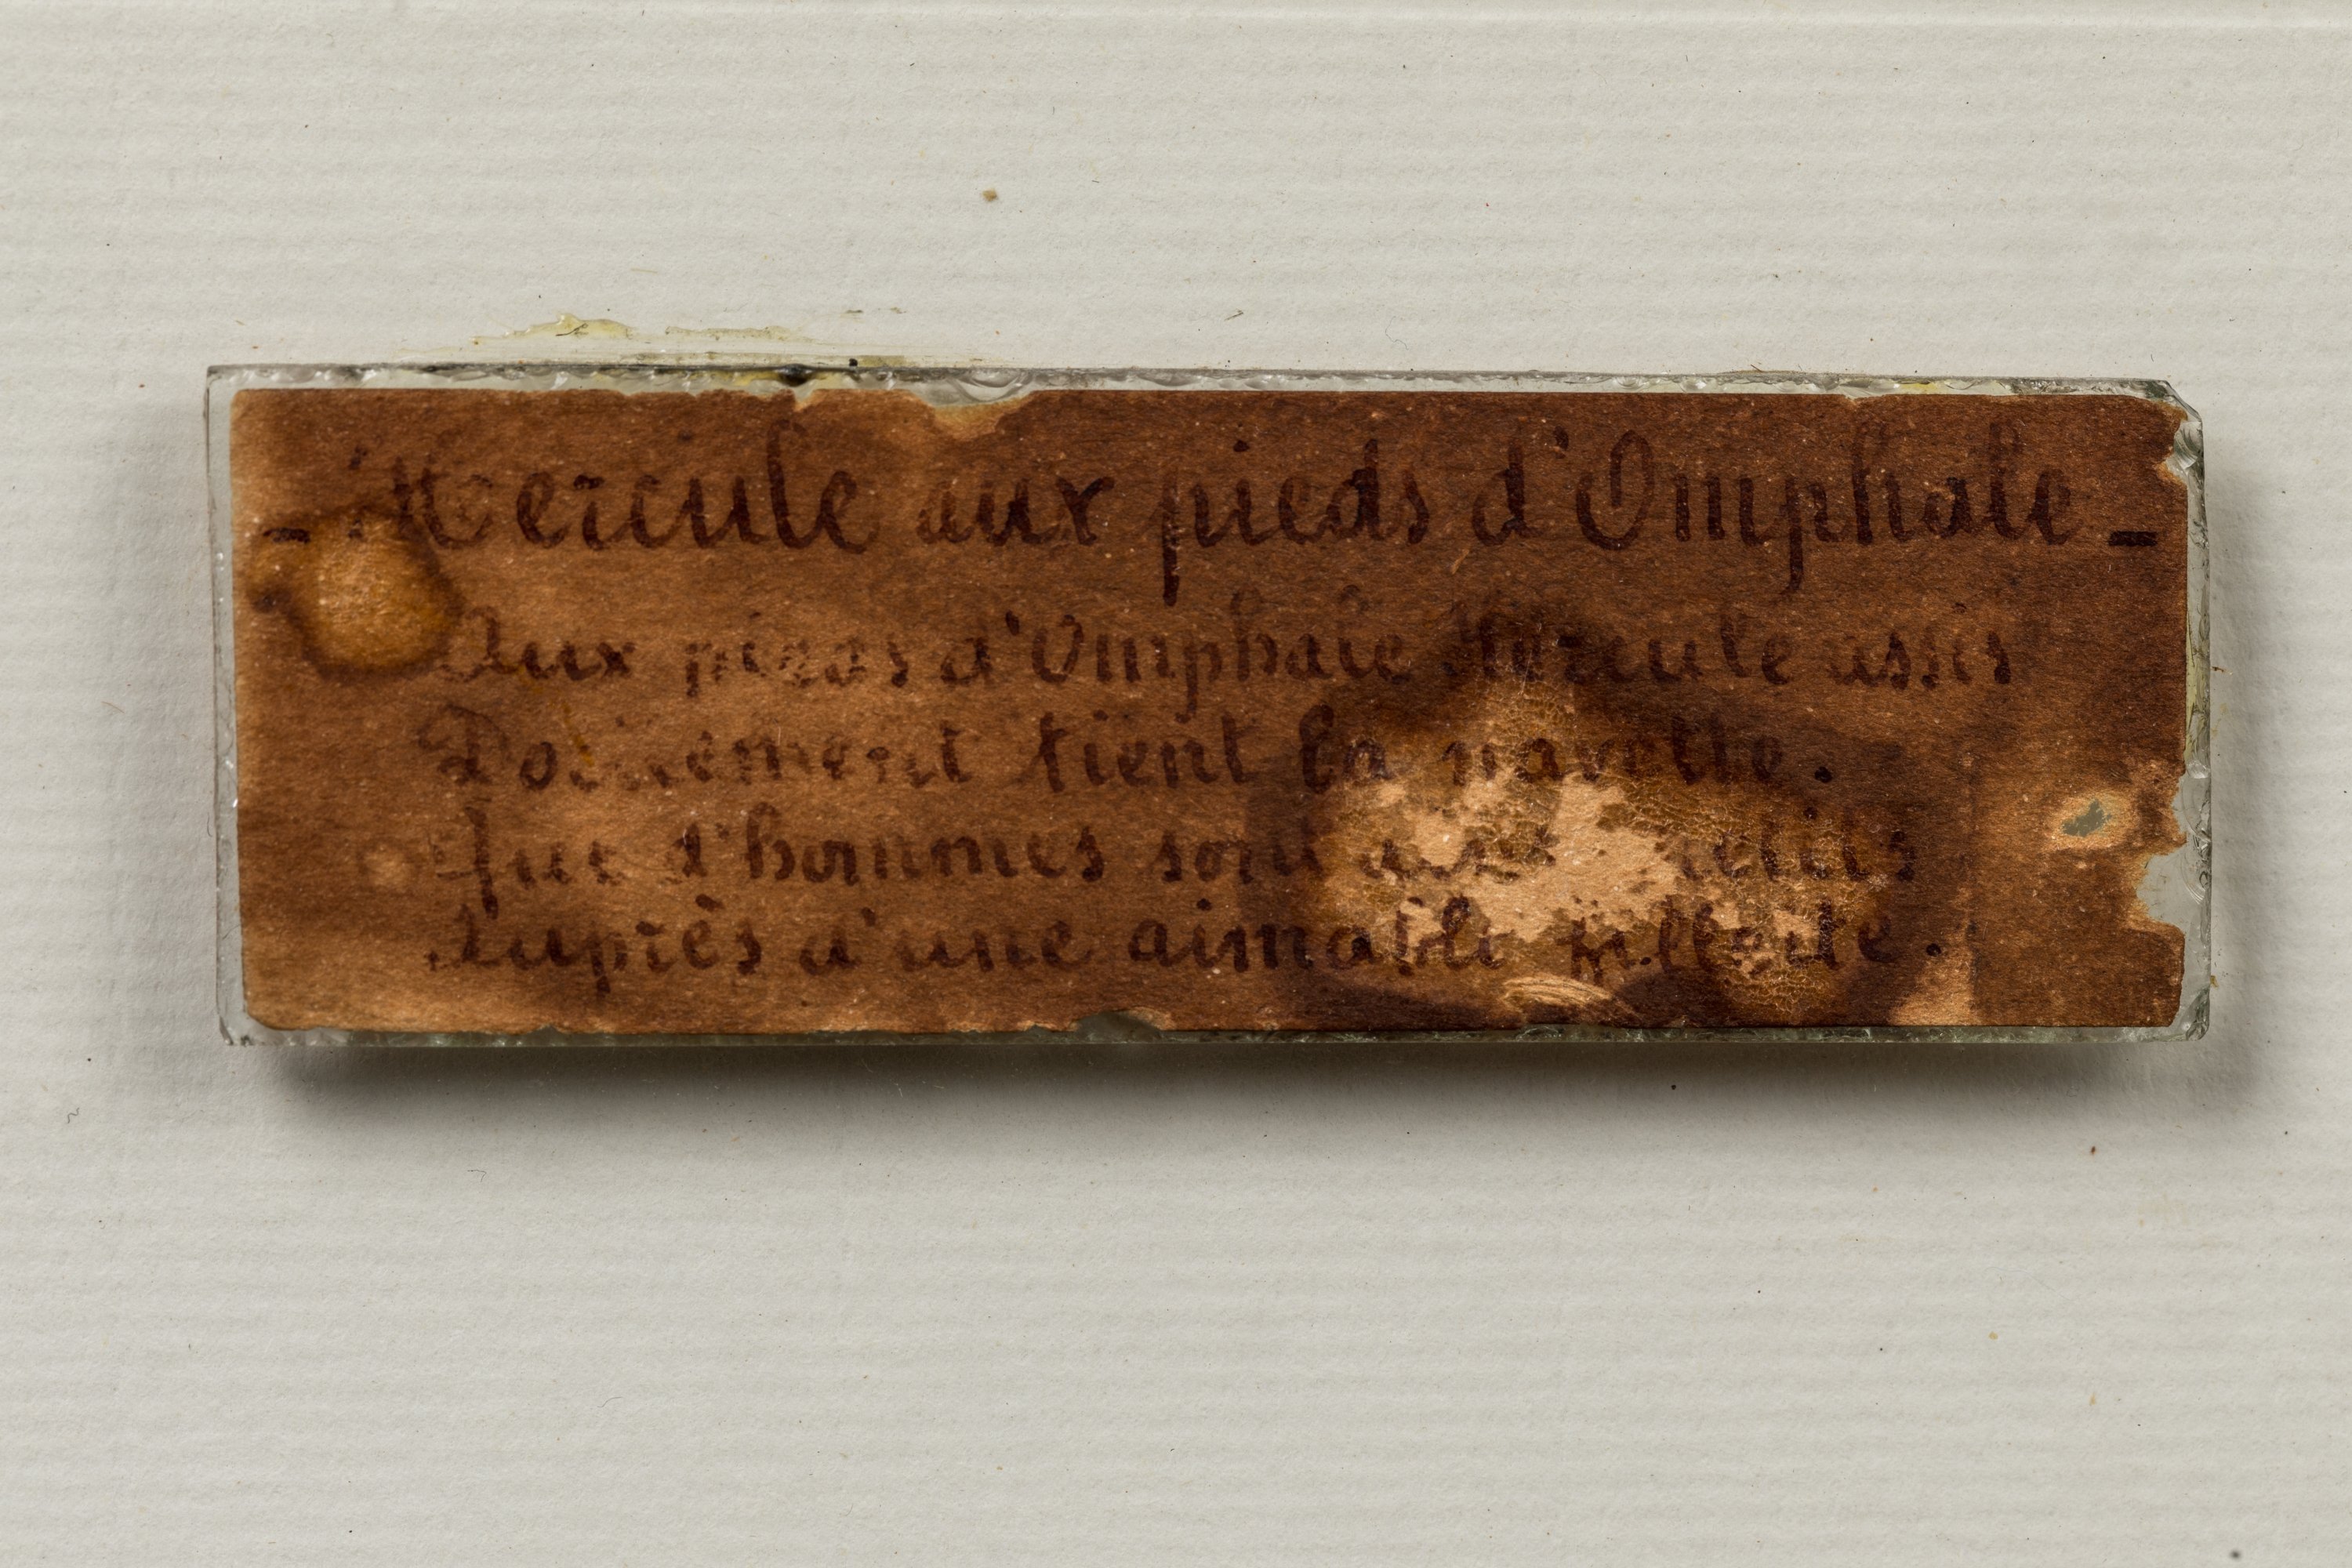 - Hercule aux pieds d'Omphale -
Aux pieds d'Omphale Hercule assis
Doucement tient la navette.
Que d'hommes sont aussi petits
Auprès d'une aimable fillette.